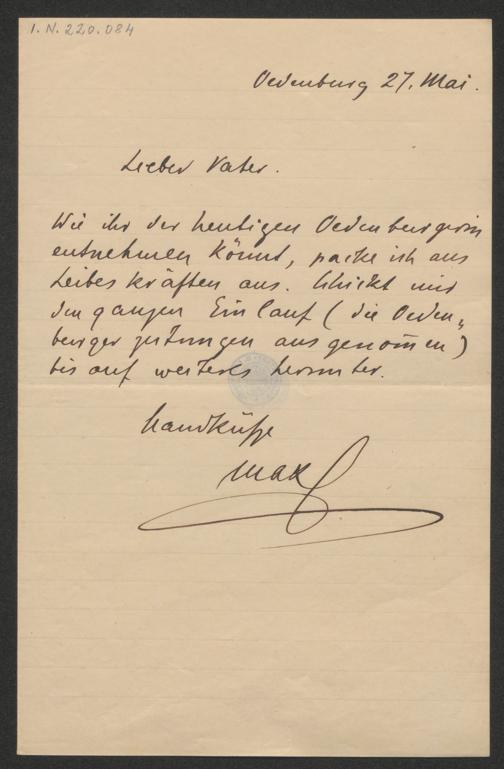 I. N. 220.084
Oedenburg 27. Mai.
Lieber Vater.
Wie ihr der heutigen Oedenburgerin
entnehmen könnt, packe ich aus
Leibeskräften aus. Schickt mir
den ganzen Einlauf (die Oeden„
burger zeitungen ausgenom̄en)
bis auf weiteres herunter.
Handküsse
Max